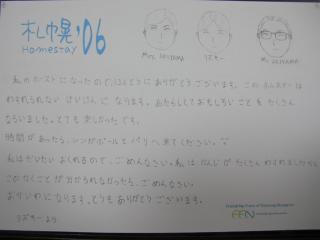 札幌'06
Homestay
Mrs. AKIYAMA
リズキー
Mr. AKIYAMA
私のホストになったので、ほんとうにありがとうございます。このホムステーは
わすれられない けいけんに なります。あたらしくておもしろい ことを たくさん
ならいました。とても 楽しかったです。
時間があったら、シンガポールと バリへ来てください。
私はだいたい おくれるので、ごめんなさい。私は かんじが たくさん わすれましたから
ことが分からなかったら、ごめんなさい。
おせわになります。とても ありがとうございます。
リズキーより